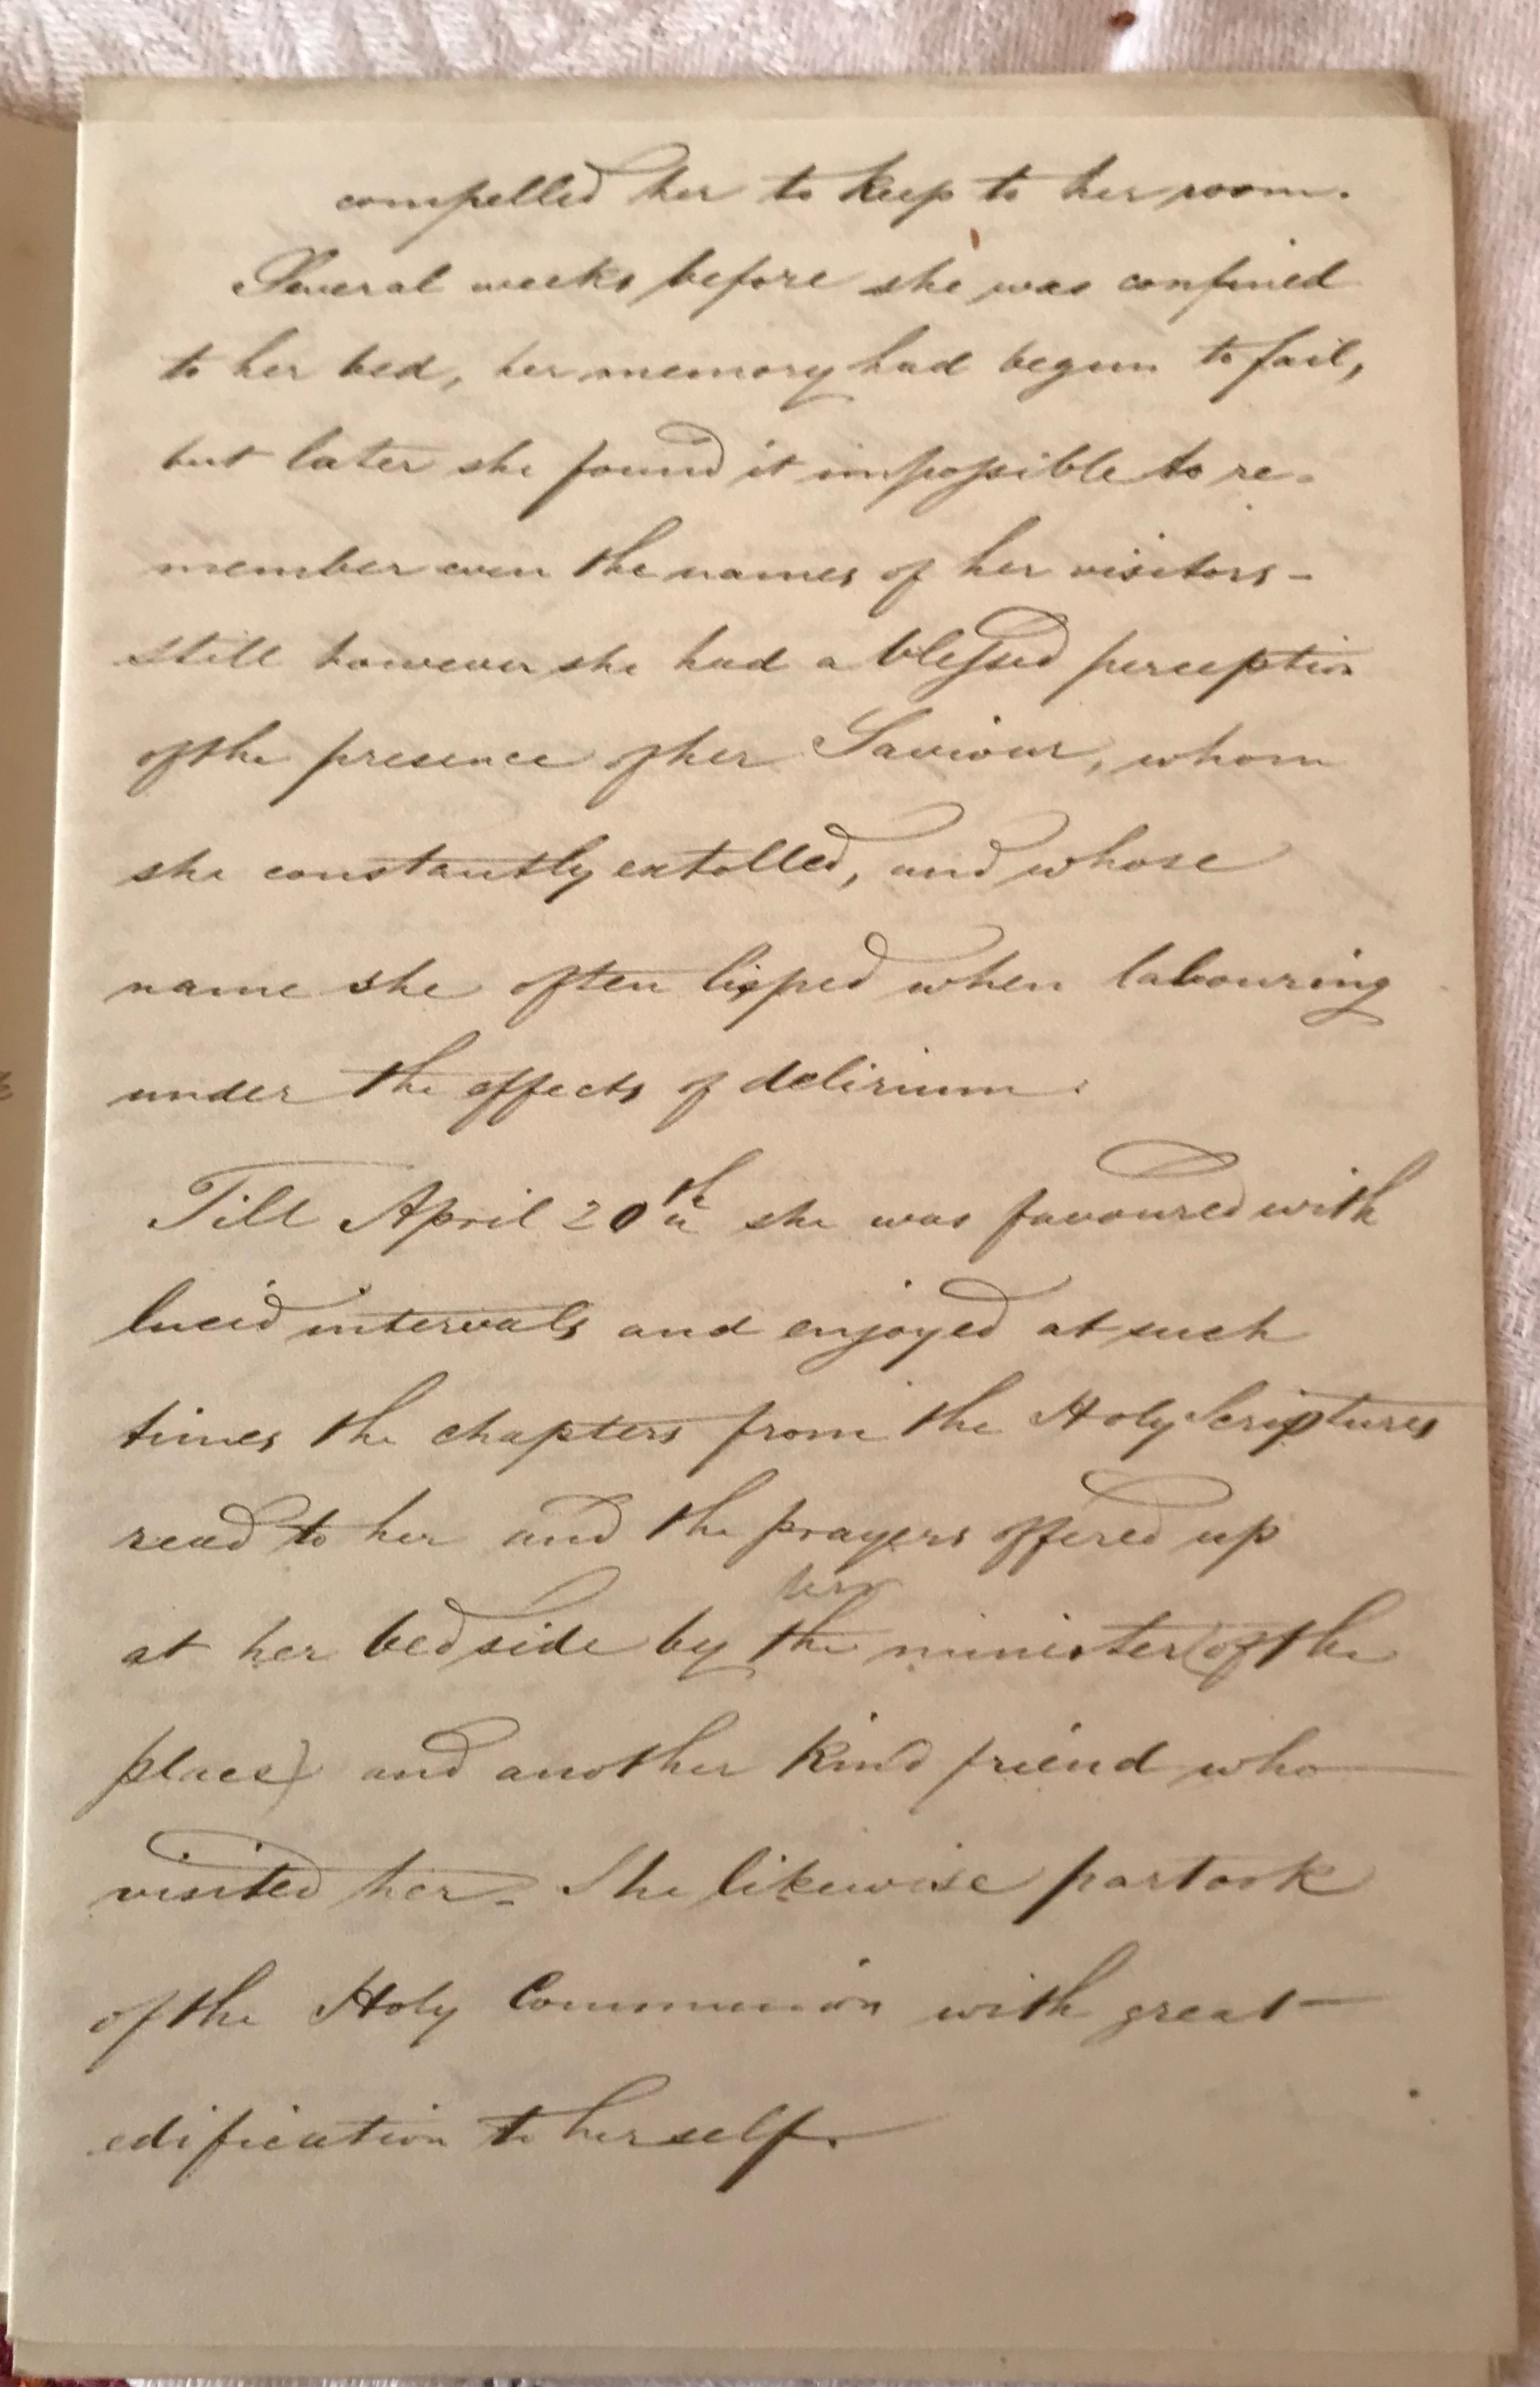 compelled her to keep to her room.
Several weeks before she was confined
to her bed, her memory had begun to fail,
but later she found it impossible to re-
member even the names of her visitors -
still however she had a blessed perception
of the presence of her Saviour, whom
she constantly extolled, and whose
name she often lisped when labouring
under the effects of delirium.
Till April 20th she was favoured with
lucid intervals and enjoyed at such
times the chapters from the Holy Scriptures
read to her and the prayers offered up
her
at her bedside by the minister (of the
place) and another kind friend who
visited her. She likewise partook
of the Holy Communion with great
edification to herself.